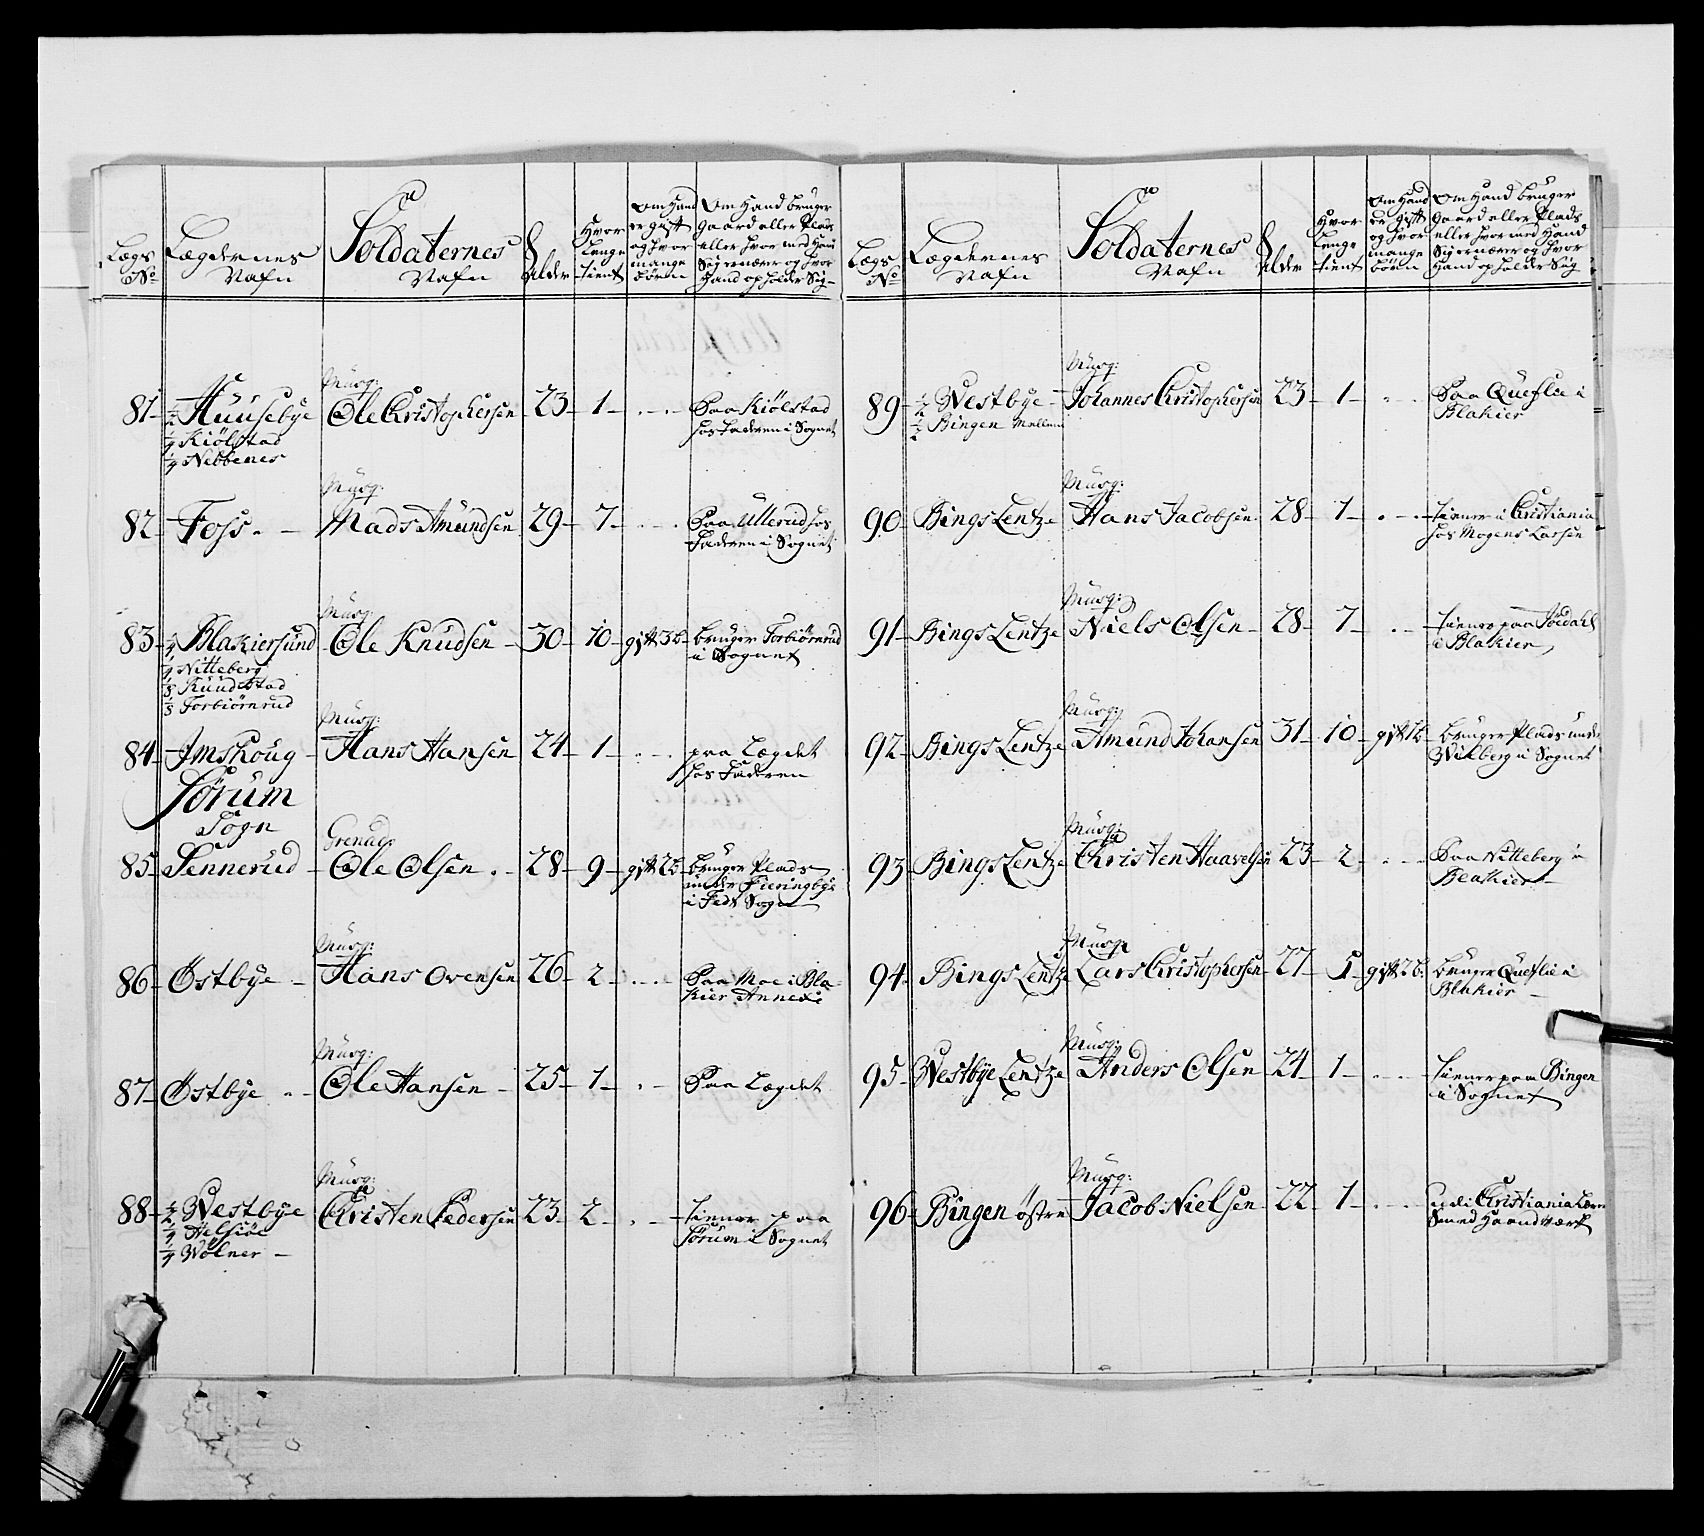 Lægs No | Lægdernes Nafn | Soldaternes Nafn | Alder | Hvor Lenge tient | Om Hand er gift og hvor mange børn | Om Hand bruger Gaard eller Plads eller hvor med Hand Sig ernærer og hvor Hand opholder Sig
81 | 1/2 Huusebye | Musq: Ole Christophersen | 23 | 1 | | Paa Kiølstad
1/4 Kiølstad | hos Faderen i Sognet
1/4 Nebbenes
82 | Foss | Musq: Mads Amundsen | 29 | 7 | | Paa Ullerud hos
Faderen i Sognet
83 | Blakiersund | Musq: Ole Knudsen | 30 | 10 | gift 3 b | bruger Torbiørnrud
1/4 Nitteberg | i Sognet
1/8 Kuudstad
1/8 Torbiørnrud
84 | Imshoug | Musq: Hans Hansen | 24 | 1 | | paa Lægdet
hos Faderen
Sørum
Sogn
85 | Sennerud | Grenad: Ole Olsen | 28 | 9 | gift 2 b | bruger Plads
under Fieringbye
i Fedt Sogn
86 | Østbye | Musq: Hans Ovensen | 26 | 2 | | Paa Moe i Bla-
kier Annex
87 | Østbye | Musq: Ole Hansen | 25 | 1 | | Paa Lægdet
88 | 1/2 Westbye | Musq: Christen Pedersen | 23 | 2 | | tiener paa
1/4 Helsiøe | Sørum i Sognet
1/4 Wølner
Lægs No | Lægdernes Nafn | Soldaternes Nafn | Alder | Hvor Lenge tient | Om Hand er gift og hvor mange børn | Om Hand bruger Gaard eller Plads eller hvor med Hand Sig ernærer og hvor Hand opholder Sig
89 | 1/2 Westbye | Musq: Johannes Christophersen | 23 | 1 | | Paa Queflie i
1/2 Bingen Mellem | Blakier
90 | Bings Lentze | Musq: Hans Jacobsen | 28 | 1 | | tiener i Christiania
hos Mogens Larsen
91 | Bings Lentze | Musq: Niels Olsen | 28 | 7 | | tiener paa
i Blakier
92 | Bings Lentze | Musq: Amund Johansen | 31 | 10 | gift 1 b | bruger Plads under
Wilberg i Sognet
93 | Bings Lentze | Musq: Christen Haavelsen | 23 | 2 | | Paa Nitteberg i
Blakier
94 | Bings Lentze | Musq: Lars Christophersen | 27 | 5 | gift 2 b. | bruger Queflie i
Blakier
95 | Westbye Lentze | Musq: Anders Olsen | 24 | 1 | | tiener paa Bingen
i Sognet
96 | Bingen østre | Musq: Jacob Nielsen | 22 | 1 | | udi Christiania Lærer
Smed Haandværk